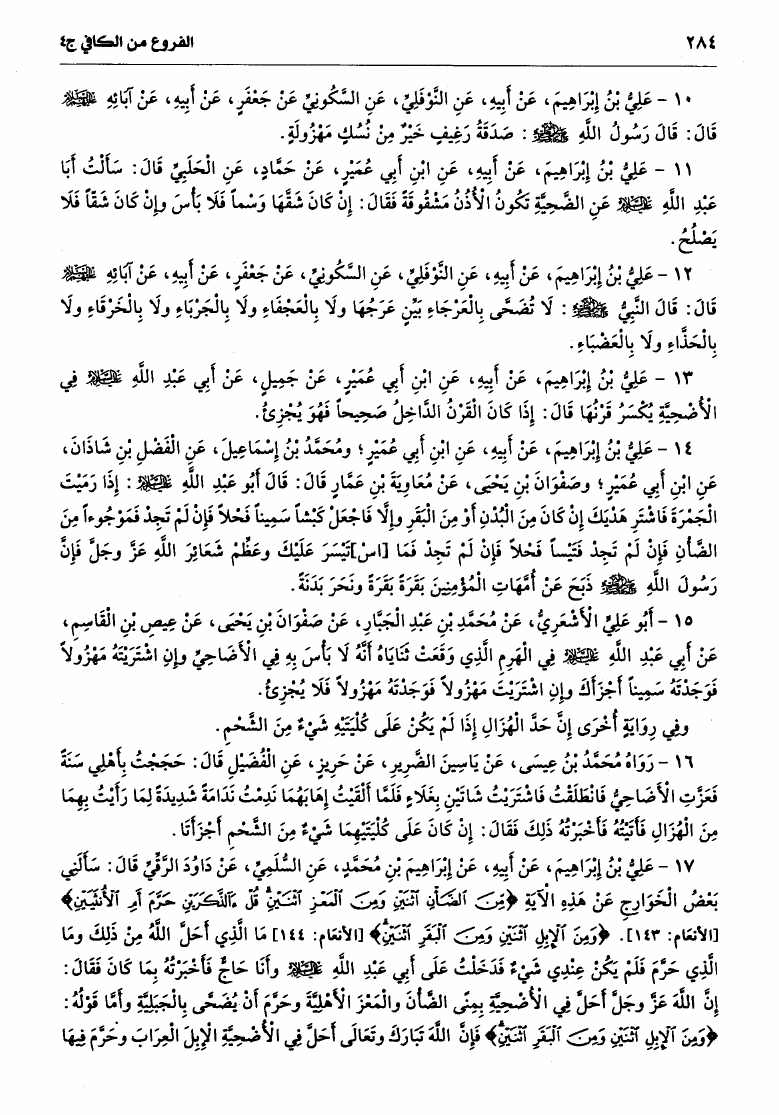 ٢٨٤ الفروع من الكافي ج٤
١٠ - عَلِيُّ بْنُ إِبْرَاهِيمَ، عَنْ أَبِيهِ، عَنِ النَّوْفَلِيِّ، عَنِ السَّكُونِيِّ عَنْ جَعْفَرٍ، عَنْ أَبِيهِ، عَنْ آبَائِهِ
قَالَ: قَالَ رَسُولُ اللَّهِ ﷺ : صَدَقَةُ رَغِيفٍ خَيْرٌ مِنْ نُسُكٍ مَهْزُولَةٍ.
١١ - عَلِيُّ بْنُ إِبْرَاهِيمَ، عَنْ أَبِيهِ، عَنِ ابْنِ أَبِي عُمَيْرٍ، عَنْ حَمَّادٍ، عَنِ الْحَلَبِيِّ قَالَ: سَأَلْتُ أَبَا
عَبْدِ اللَّهِ عَنِ الضَّحِيَّةِ تَكُونُ الْأُذُنُ مَشْقُوقَةً فَقَالَ: إِنْ كَانَ شَقَّهَا وَسْماً فَلَا بَأْسَ وإِنْ كَانَ شَقّاً فَلَا
يَصْلُحُ.
١٢ - عَلِيُّ بْنُ إِبْرَاهِيمَ، عَنْ أَبِيهِ، عَنِ النَّوْفَلِيِّ، عَنِ السَّكُونِيِّ، عَنْ جَعْفَرٍ، عَنْ أَبِيهِ، عَنْ آبَائِهِ
قَالَ: قَالَ النَّبِيُّ ﷺ : لَا تُضَحَّى بِالْعَرْجَاءِ بَيِّنٍ عَرَجُهَا ولَا بِالْعَجْفَاءِ ولَا بِالْجَرْبَاءِ ولَا بِالْخَرْقَاءِ ولَا
بِالْحَذَّاءِ ولَا بِالْعَضْبَاءِ.
١٣ - عَلِيُّ بْنُ إِبْرَاهِيمَ، عَنْ أَبِيهِ، عَنِ ابْنِ أَبِي عُمَيْرٍ، عَنْ جَمِيلٍ، عَنْ أَبِي عَبْدِ اللَّهِ فِي
الْأُضْحِيَّةِ يُكْسَرُ قَرْنُهَا قَالَ: إِذَا كَانَ الْقَرْنُ الدَّاخِلُ صَحِيحاً فَهُوَ يُجْزِئُ.
١٤ - عَلِيُّ بْنُ إِبْرَاهِيمَ، عَنْ أَبِيهِ، عَنِ ابْنِ أَبِي عُمَيْرٍ؛ ومُحَمَّدُ بْنُ إِسْمَاعِيلَ، عَنِ الْفَضْلِ بْنِ شَاذَانَ،
عَنِ ابْنِ أَبِي عُمَيْرٍ؛ وصَفْوَانَ بْنِ يَحْيَى، عَنْ مُعَاوِيَةَ بْنِ عَمَّارٍ قَالَ: قَالَ أَبُو عَبْدِ اللَّهِ : إِذَا رَمَيْتَ
الْجَمْرَةَ فَاشْتَرِ هَدْيَكَ إِنْ كَانَ مِنَ الْبُدْنِ أَوْ مِنَ الْبَقَرِ وإِلَّا فَاجْعَلْ كَبْشاً سَمِيناً فَحْلاً فَإِنْ لَمْ تَجِدْ فَمَوْجُوءاً مِنَ
الضَّأْنِ فَإِنْ لَمْ تَجِدْ فَتَيْساً فَحْلاً فَإِنْ لَمْ تَجِدْ فَمَا [اسْ]تَيْسَرَ عَلَيْكَ وعَظِّمْ شَعَائِرَ اللَّهِ عَزَّ وجَلَّ فَإِنَّ
رَسُولَ اللَّهِ ﷺ ذَبَحَ عَنْ أُمَّهَاتِ الْمُؤْمِنِينَ بَقَرَةً بَقَرَةً ونَحَرَ بَدَنَةً.
١٥ - أَبُو عَلِيٍّ الْأَشْعَرِيُّ، عَنْ مُحَمَّدِ بْنِ عَبْدِ الْجَبَّارِ، عَنْ صَفْوَانَ بْنِ يَحْيَى، عَنْ عِيصِ بْنِ الْقَاسِمِ،
عَنْ أَبِي عَبْدِ اللَّهِ فِي الْهَرِمِ الَّذِي وَقَعَتْ ثَنَايَاهُ أَنَّهُ لَا بَأْسَ بِهِ فِي الْأَضَاحِيِّ وإِنِ اشْتَرَيْتَهُ مَهْزُولاً
فَوَجَدْتَهُ سَمِيناً أَجْزَأَكَ وإِنِ اشْتَرَيْتَ مَهْزُولاً فَوَجَدْتَهُ مَهْزُولاً فَلَا يُجْزِئُ.
وفِي رِوَايَةٍ أُخْرَى إِنَّ حَدَّ الْهُزَالِ إِذَا لَمْ يَكُنْ عَلَى كُلْيَتَيْهِ شَيْءٌ مِنَ الشَّحْمِ.
١٦ - رَوَاهُ مُحَمَّدُ بْنُ عِيسَى، عَنْ يَاسِينَ الضَّرِيرِ، عَنْ حَرِيزٍ، عَنِ الْفُضَيْلِ قَالَ: حَجَجْتُ بِأَهْلِي سَنَةً
فَعَزَّتِ الْأَضَاحِيُّ فَانْطَلَقْتُ فَاشْتَرَيْتُ شَاتَيْنِ بِغَلَاءٍ فَلَمَّا أَلْقَيْتُ إِهَابَهُمَا نَدِمْتُ نَدَامَةً شَدِيدَةً لِمَا رَأَيْتُ بِهِمَا
مِنَ الْهُزَالِ فَأَتَيْتُهُ فَأَخْبَرْتُهُ ذَلِكَ فَقَالَ: إِنْ كَانَ عَلَى كُلْيَتَيْهِمَا شَيْءٌ مِنَ الشَّحْمِ أَجْزَأَتَا.
١٧ - عَلِيُّ بْنُ إِبْرَاهِيمَ، عَنْ أَبِيهِ، عَنْ إِبْرَاهِيمَ بْنِ مُحَمَّدٍ، عَنِ السُّلَمِيِّ، عَنْ دَاوُدَ الرَّقِّيِّ قَالَ: سَأَلَنِي
بَعْضُ الْخَوَارِجِ عَنْ هَذِهِ الْآيَةِ ﴿مِّنَ ٱلضَّأْنِ ٱثْنَيْنِ وَمِنَ ٱلْمَعْزِ ٱثْنَيْنِ قُلْ ءَآلذَّكَرَيْنِ حَرَّمَ أَمِ ٱلْأُنثَيَيْنِ﴾
[الأنعَام: ١٤٣]. ﴿وَمِنَ ٱلْإِبِلِ ٱثْنَيْنِ وَمِنَ ٱلْبَقَرِ ٱثْنَيْنِ﴾ [الأنعَام: ١٤٤] مَا الَّذِي أَحَلَّ اللَّهُ مِنْ ذَلِكَ ومَا
الَّذِي حَرَّمَ فَلَمْ يَكُنْ عِنْدِي شَيْءٌ فَدَخَلْتُ عَلَى أَبِي عَبْدِ اللَّهِ وأَنَا حَاجٌّ فَأَخْبَرْتُهُ بِمَا كَانَ فَقَالَ:
إِنَّ اللَّهَ عَزَّ وجَلَّ أَحَلَّ فِي الْأُضْحِيَّةِ بِمِنًى الضَّأْنَ والْمَعْزَ الْأَهْلِيَّةَ وحَرَّمَ أَنْ يُضَحَّى بِالْجَبَلِيَّةِ وأَمَّا قَوْلُهُ:
﴿وَمِنَ ٱلْإِبِلِ ٱثْنَيْنِ وَمِنَ ٱلْبَقَرِ ٱثْنَيْنِ﴾ فَإِنَّ اللَّهَ تَبَارَكَ وتَعَالَى أَحَلَّ فِي الْأُضْحِيَّةِ الْإِبِلَ الْعِرَابَ وحَرَّمَ فِيهَا